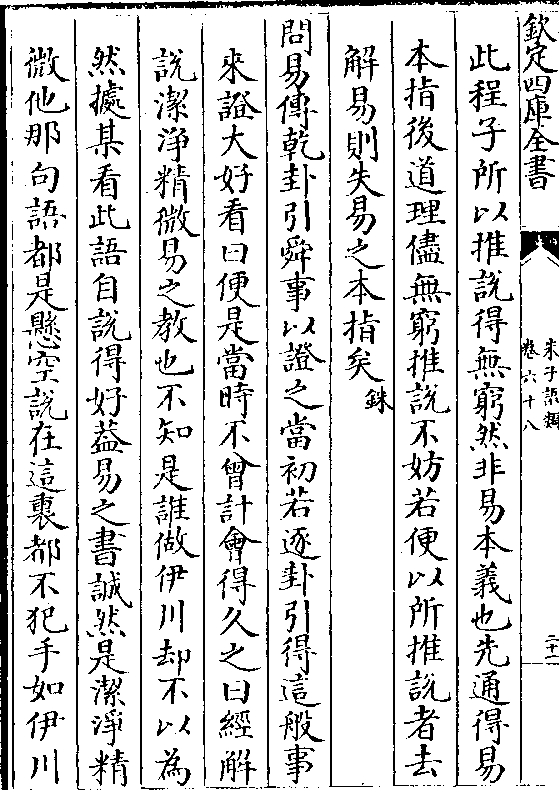 欽定四庫全書
朱子語類
卷六十八
二十一
此程子所以推說得無窮然非易本義也先通得易
本指後道理儘無窮推說不妨若便以所推說者去
解易則失易之本指矣銖
問易傳乾卦引舜事以證之當初若逐卦引得這般事
來證大好看曰便是當時不曾計會得久之曰經解
說潔淨精微易之教也不知是誰做伊川却不以為
然據某看此語自說得好葢易之書誠然是潔淨精
微他那句語都是懸空說在這裏都不犯手如伊川